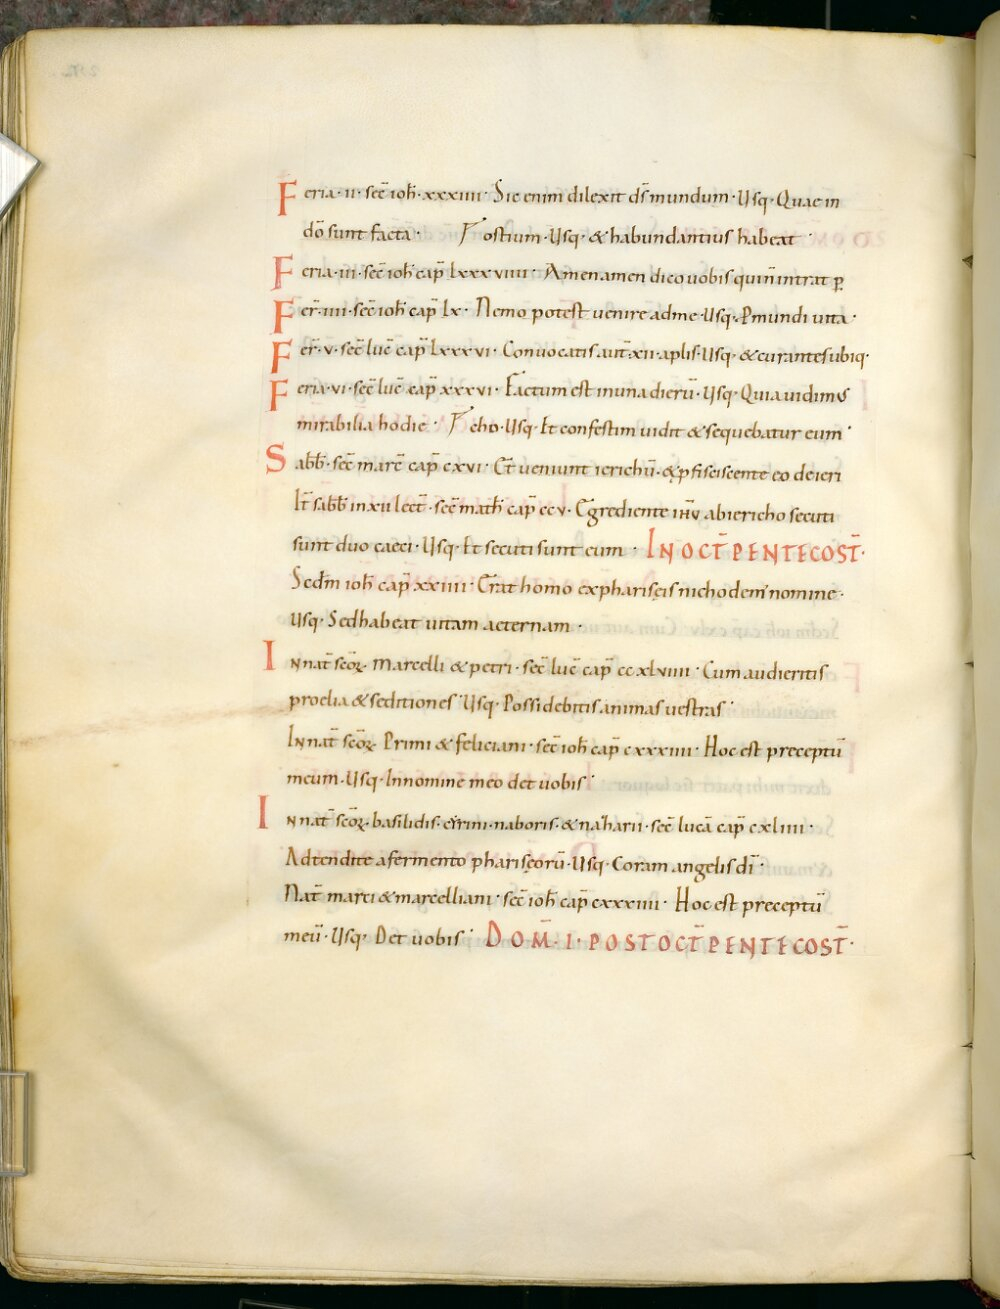 Feria·ii·sec̄ ioh̄·xxxiiii· Sic enim dilexit ds̄ mundum·Usq·Quae in
dō sunt facta· ostium·Usq·&habundantius habeat·
Feria·iii·sec̄ ioh̄ cap̄ lxxxviiii· Amen amen dico uobis qui nīntrat p̱
Fer̄·iiii·sec̄ ioh̄ cap̄ lx· Nemo potest uenire adme·Usq·Pmundi uita·
Fer̄·v·sec̄ luc̄ cap̄ lxxxvi· Conuocatis aut̄·xii·aplis·Usq·&curantes ubiq·
Feria·vi·sec̄ luc̄ cap̄ xxxvi· Factum est inuna dierū·Usq·Quia uidimus
mirabilia hodie· Usq·Et confestim uidit &sequebatur eum·
Sabb̄·sec̄ marc̄ cap̄ cxvi· Et ueniunt ierichū·&pficiscente eo deieri
It̄ sabb̄ inxii lect̄·sec̄ math̄ cap̄ ccv· Egrediente ihū abiericho secuti
sunt duo caeci·Usq·Et secuti sunt eum· IN OCT̄ PENTECOST̄·
Secdm̄ ioh̄ cap̄ xxiiii· Erat homo expharisęis nichodem' nomine·
Usq· Sedhabeat uitam aeternam·
Innat̄ scōꝝ· Marcelli &petri·sec̄ luc̄ cap̄ ccxlviiii· Cum audieritis
proelia &seditiones·Usq·Possidebitis animas uestras·
Innat̄ scōꝝ· Primi &feliciani·sec̄ ioh̄ cap̄ cxxxiiii· Hoc est preceptū
meum·Usq·Innomine meo det uobis·
Innat̄ scōꝝ·basilidis·cyrini·naboris·&naharii·sec̄ lucā cap̄ cxliiii·
Adtendite afermento pharisęorū·Usq·Coram angelis dī·
Nat̄ marci &marcelliani·sec̄ ioh̄ cap̄ cxxxiiii· Hoc est preceptū
meū·Usq·Det uobis· DOM̄·I·POST OCT̄ PENTECOST̄·